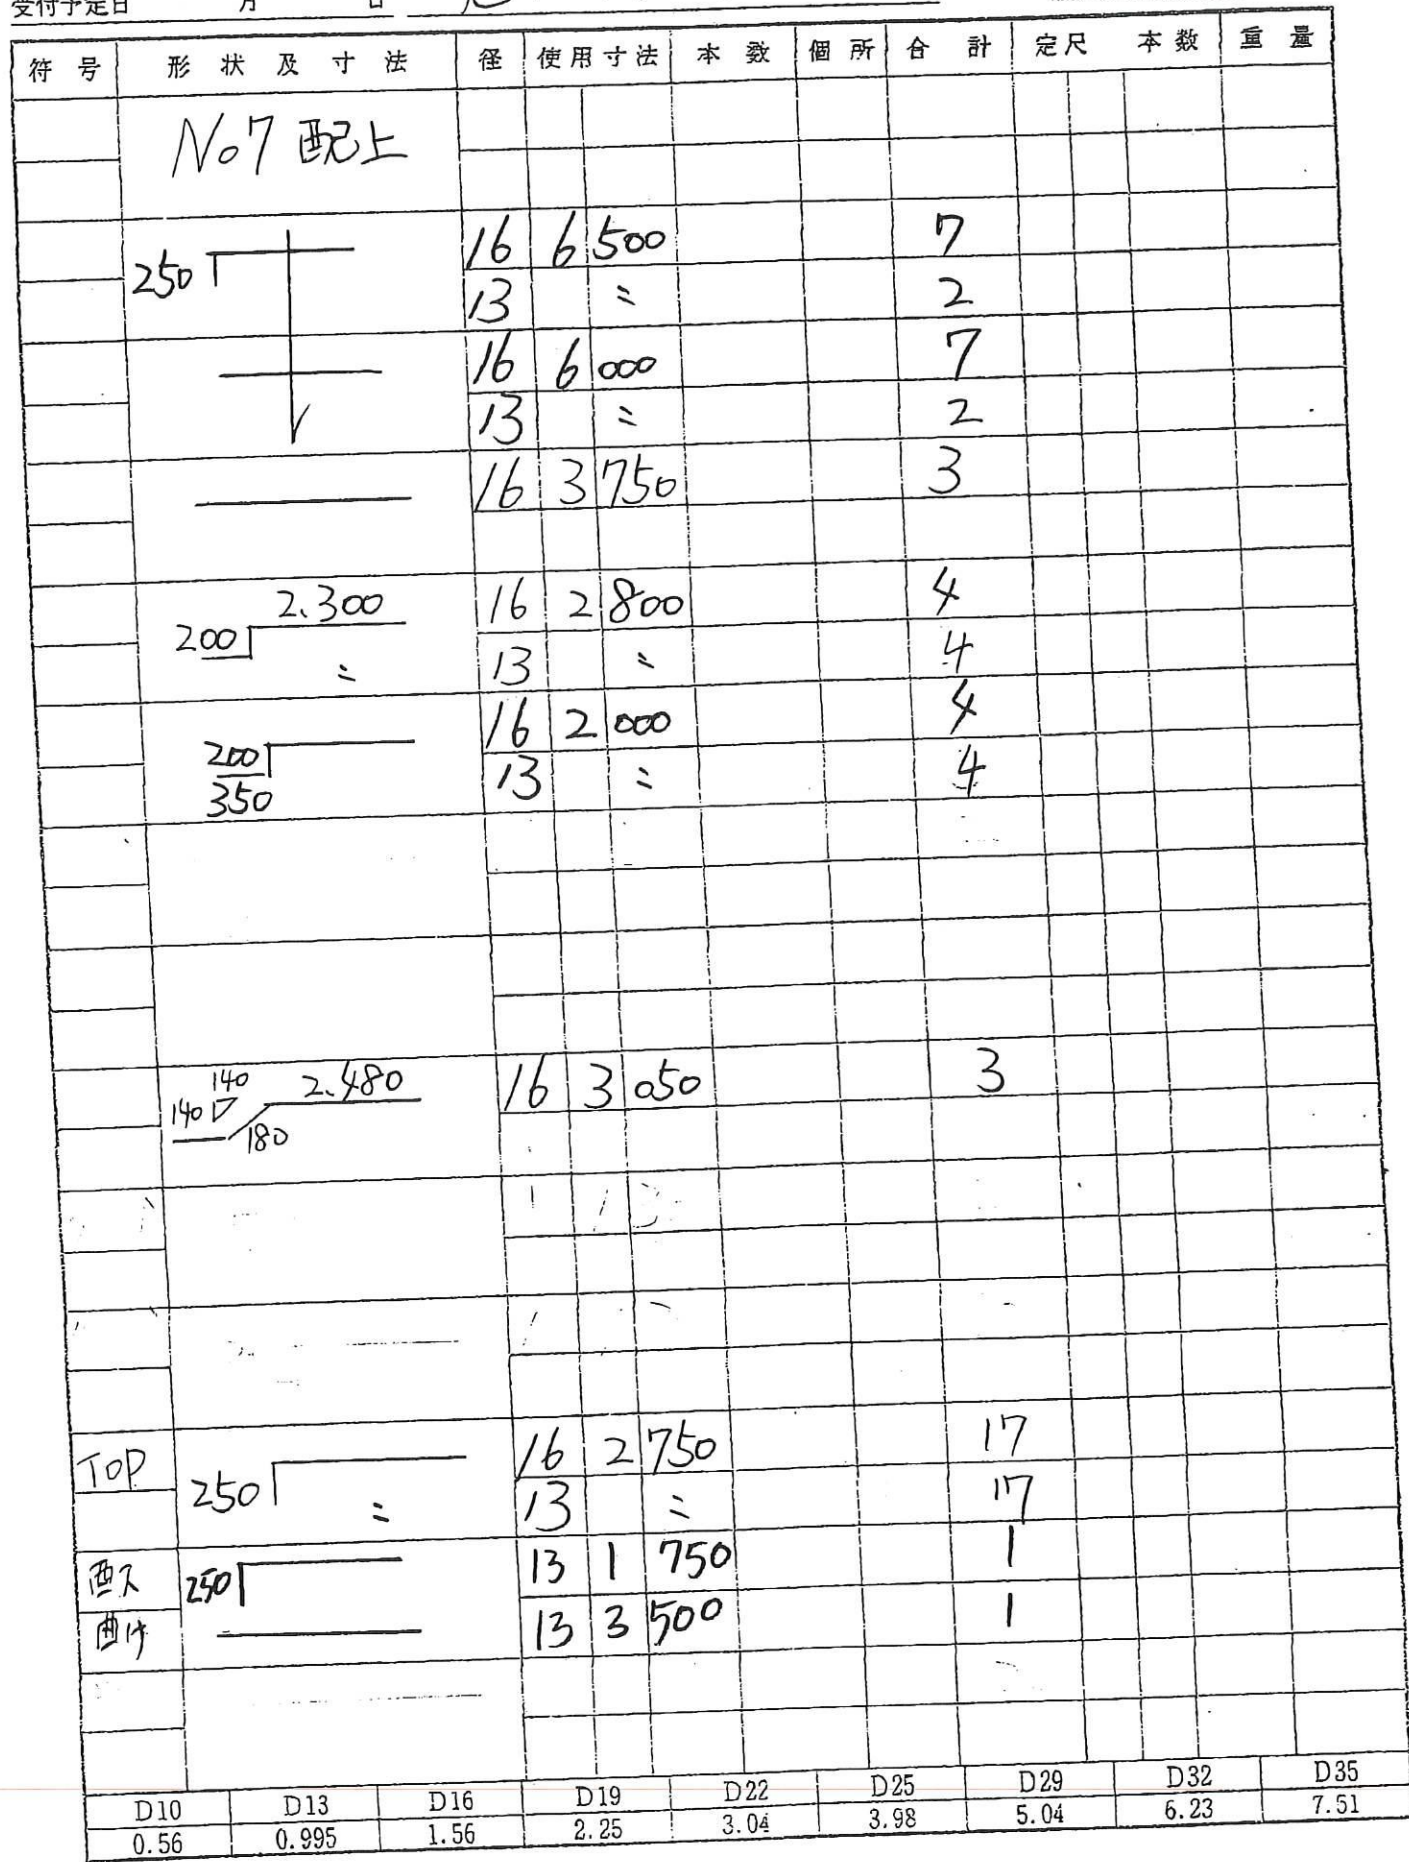 受付予定日 月 日
符号 形状及寸法 径 使用寸法 本数 個所 合計 定尺 本数 重量
No7 配上
250 16 6 500 7
13 〃 2
16 6 000 7
13 〃 2
16 3 750 3
2.300 16 2 800 4
200 〃 13 〃 4
200 16 2 000 4
350 13 〃 4
140 2.480 16 3 050 3
140
180
TOP 250 16 2 750 17
〃 13 〃 17
250 13 1 750 1
曲げ 13 3 500 1
D10 D13 D16 D19 D22 D25 D29 D32 D35
0.56 0.995 1.56 2.25 3.04 3.98 5.04 6.23 7.51